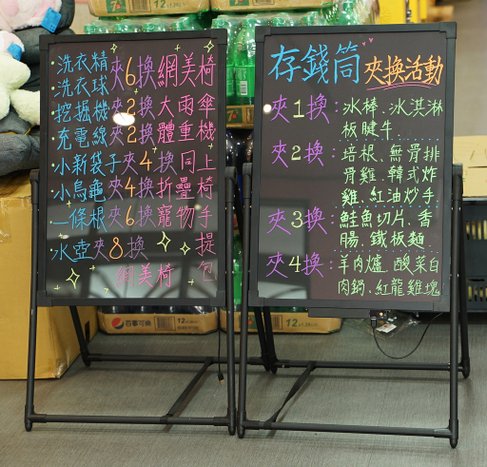 洗衣精夾6換網美椅
洗衣球
挖掘機夾2換大雨傘
充電線夾2換體重機
小新袋子夾4換同上
小烏龜夾4換折疊椅
一條根夾6換寵物手
水壺夾8換 提
網美椅 包
存錢筒夾換活動
夾1換:冰棒、冰淇淋
板腱牛
夾2換:培根、無骨排
骨雞、韓式炸
雞、紅油炒手
夾3換:鮭魚切片、香
腸、鐵板麵
夾4換:羊肉爐、酸菜白
肉鍋、紅龍雞塊
百事可樂 12
12